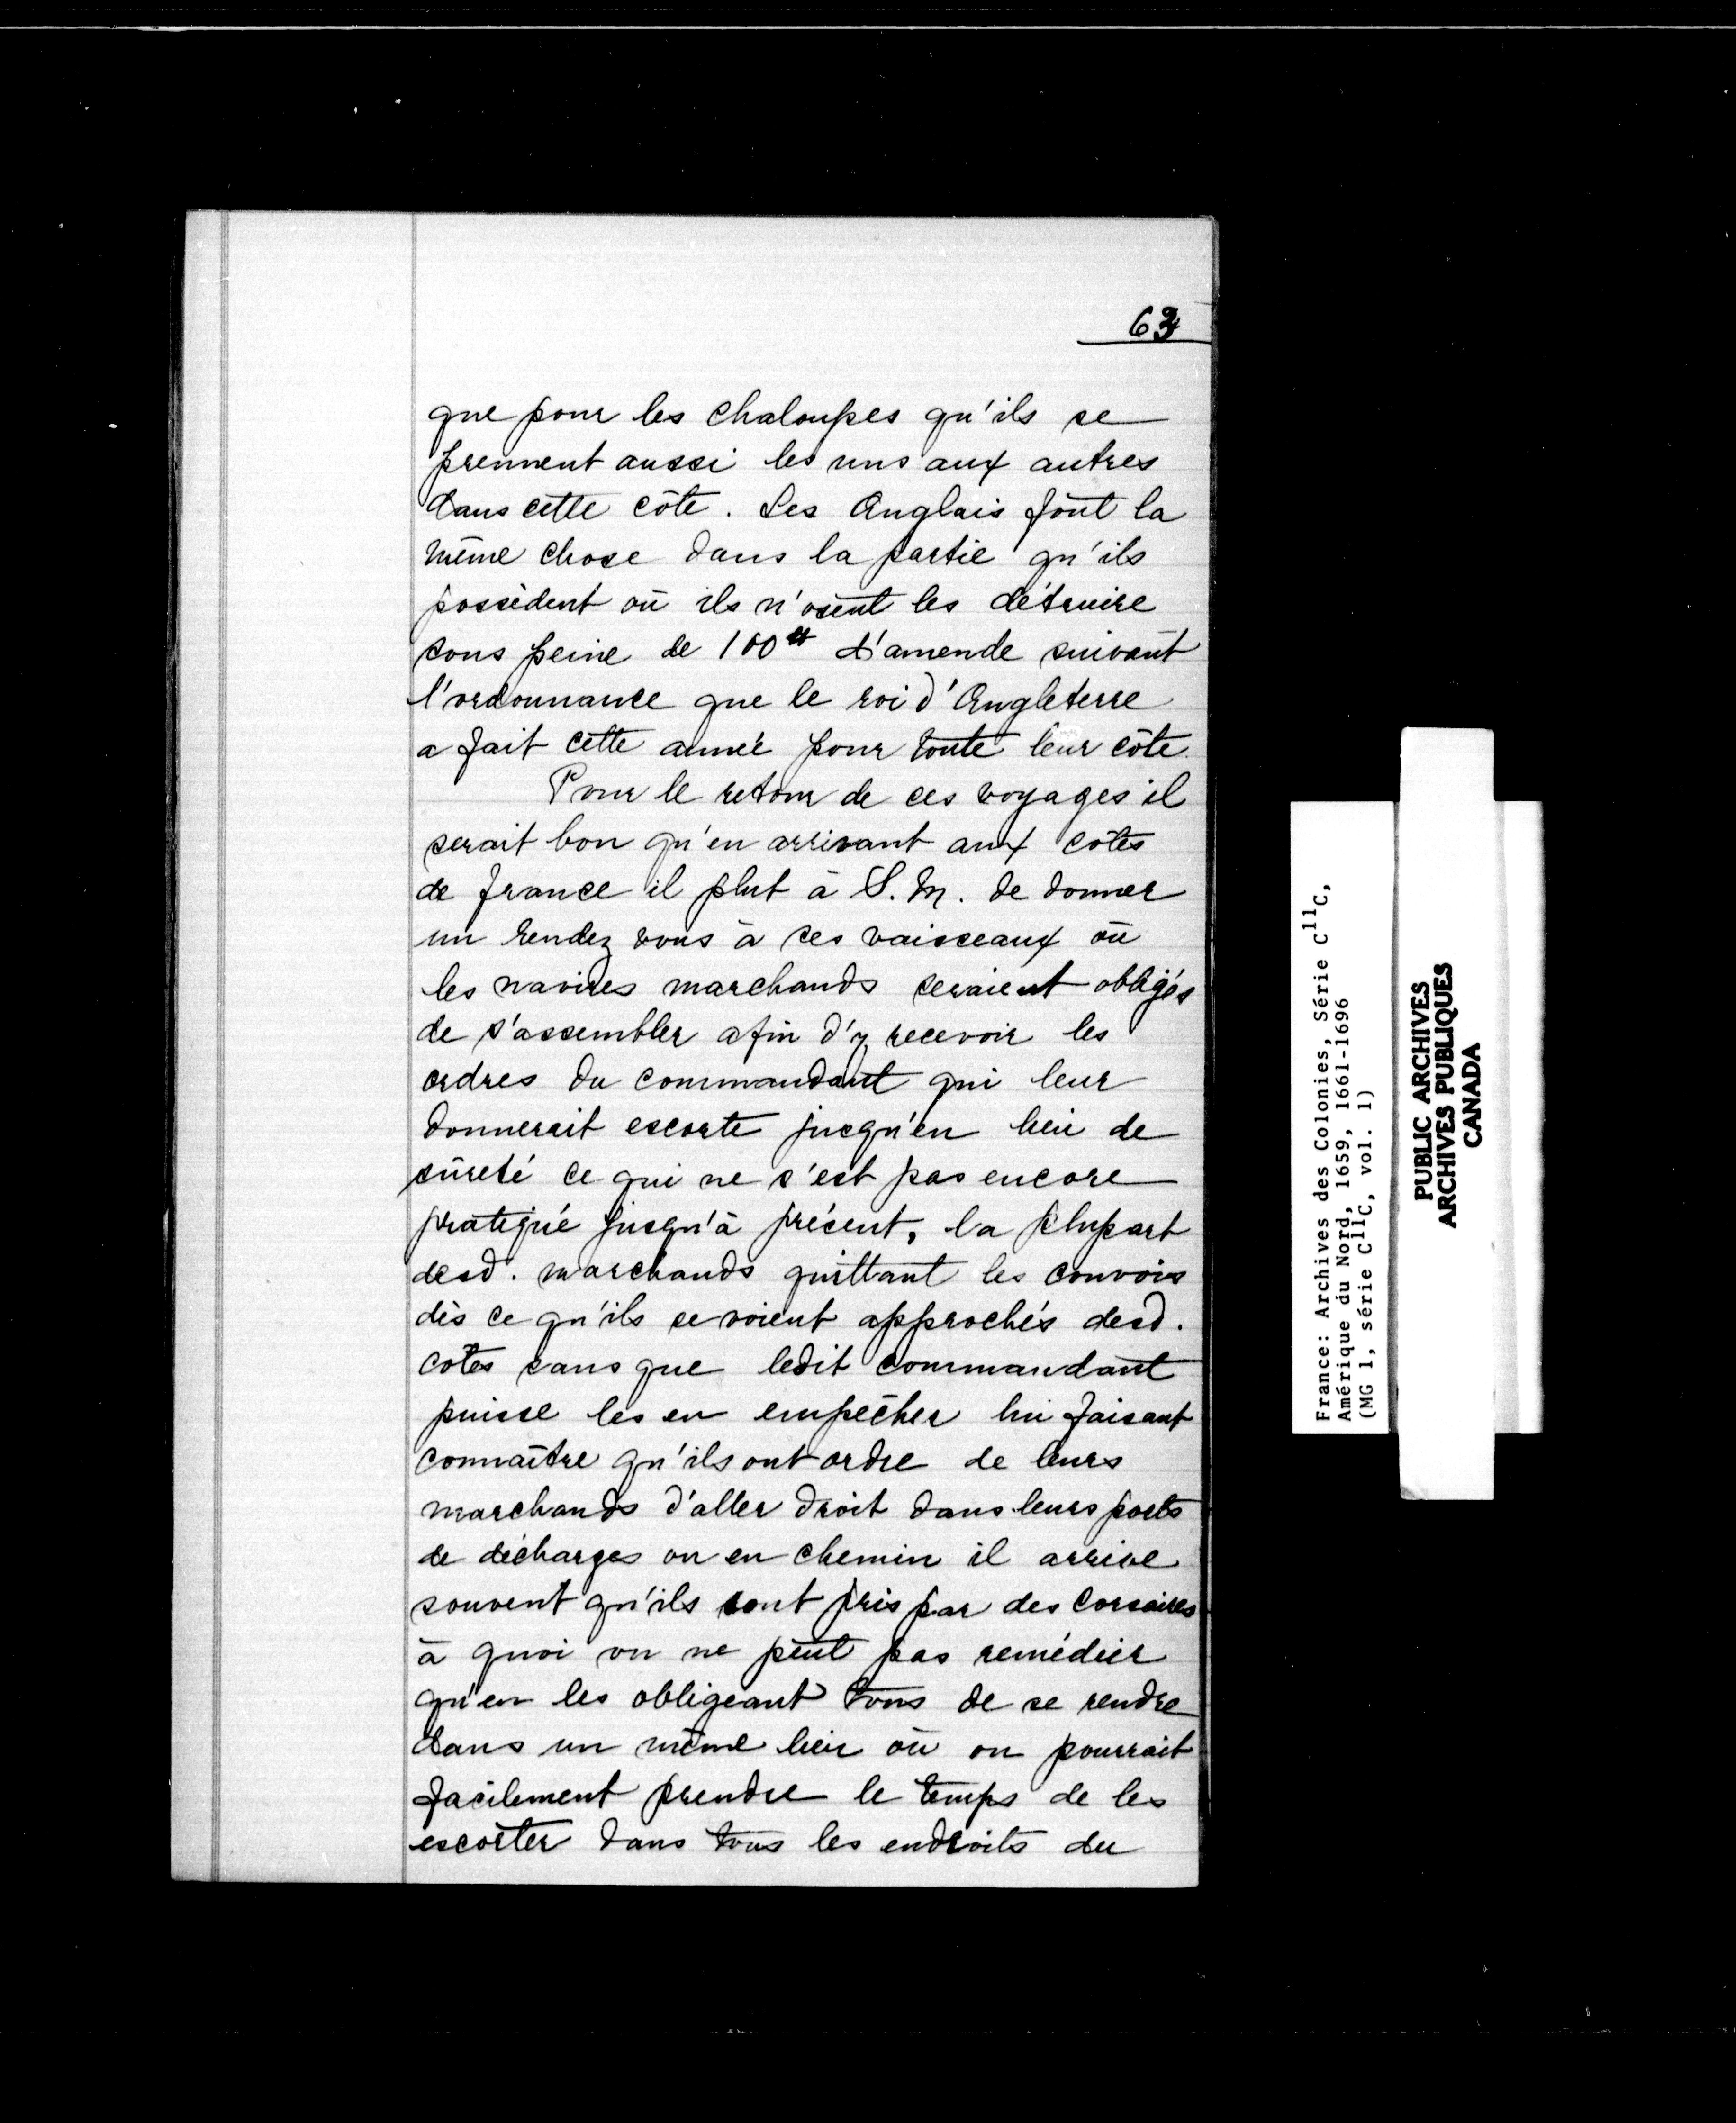 63
que pour les chaloupes qu'ils se
prennent aussi les uns aux autres
dans cette côte. Les Anglais font la
même chose dans la partie qu'ils
possèdent où ils n'osent les détruire
sous peine de 100# d'amende suivant
l'ordonnance que le roi d'Angleterre
a fait cette année pour toute leur côte.
Pour le retour de ces voyages il
serait bon qu'en arrivant aux côtes
de france il plut à S. M. de donner
un rendez vous à ses vaisseaux où
les navires marchands seraient obligés
de s'assembler afin d'y recevoir les
ordres du commandant qui leur
donnerait escorte jusqu'en lieu de
sûreté ce qui ne s'est pas encore
pratiqué jusqu'à présent, la plupart
desd. marchands quittant les convois
dès ce qu'ils se voient approchés desd.
côtes sans que ledit commandant
puisse les en empêcher lui faisant
connaître qu'ils ont ordre de leurs
marchands d'aller droit dans leurs ports
de décharges ou en chemin il arrive
souvent qu'ils sont pris par des corsaires
à quoi on ne peut pas remédier
qu'en les obligeant tous de se rendre
dans un même lieu où on pourrait
facilement prendre le temps de les
escorter dans tous les endroits du
France: Archives des Colonies, Série C11C,
Amérique du Nord, 1659, 1661-1696
(MG 1, série C11C, vol. 1)
PUBLIC ARCHIVES
ARCHIVES PUBLIQUES
CANADA